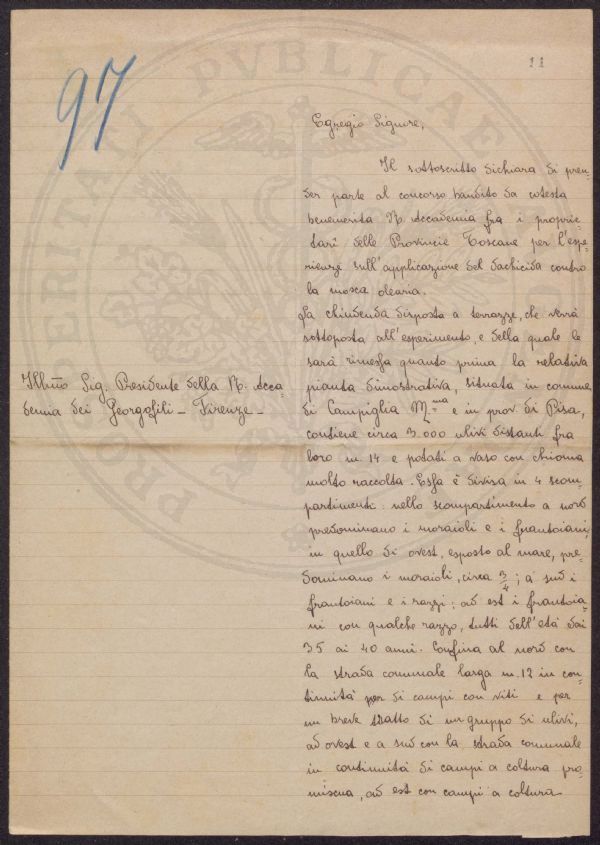 97
11
Egregio Signore,
Il sottoscritto dichiara di pren=
der parte al concorso bandito da cotesta
benemerita R. Accademia fra i proprie=
tari delle Provincie Toscane per l'espe=
rienze sull'applicazione del dachicida contro
la mosca olearia.
La chiudenda disposta a terrazze, che verrà
sottoposta all'esperimento, e della quale le
sarà rimessa quanto prima la relativa
pianta dimostrativa, situata in comune
di Campiglia M.ma e in prov. di Pisa,
contiene circa 3.000 ulivi distanti fra
loro m. 14 e potati a vaso con chioma
molto raccolta. Essa è divisa in 4 scom=
partimenti: nello scompartimento a nord
predominano i moraioli e i frantoiani;
in quello di ovest, esposto al mare, pre=
dominano i moraioli, circa 3/4; a sud i
frantoiani e i razzi; ad est i frantoia=
ni con qualche razzo, tutti dell'età dai
35 ai 40 anni. Confina al nord con
la strada comunale larga m. 12 in con=
tinuità per di campi con viti e per
un breve tratto di un gruppo di ulivi,
ad ovest e a sud con la strada comunale
in continuità di campi a coltura pro=
miscua, ad est con campi a coltura
Illmo Sig. Presidente della R. Acca=
demia dei Georgofili – Firenze –
PROSPERITATI PVBLICAE